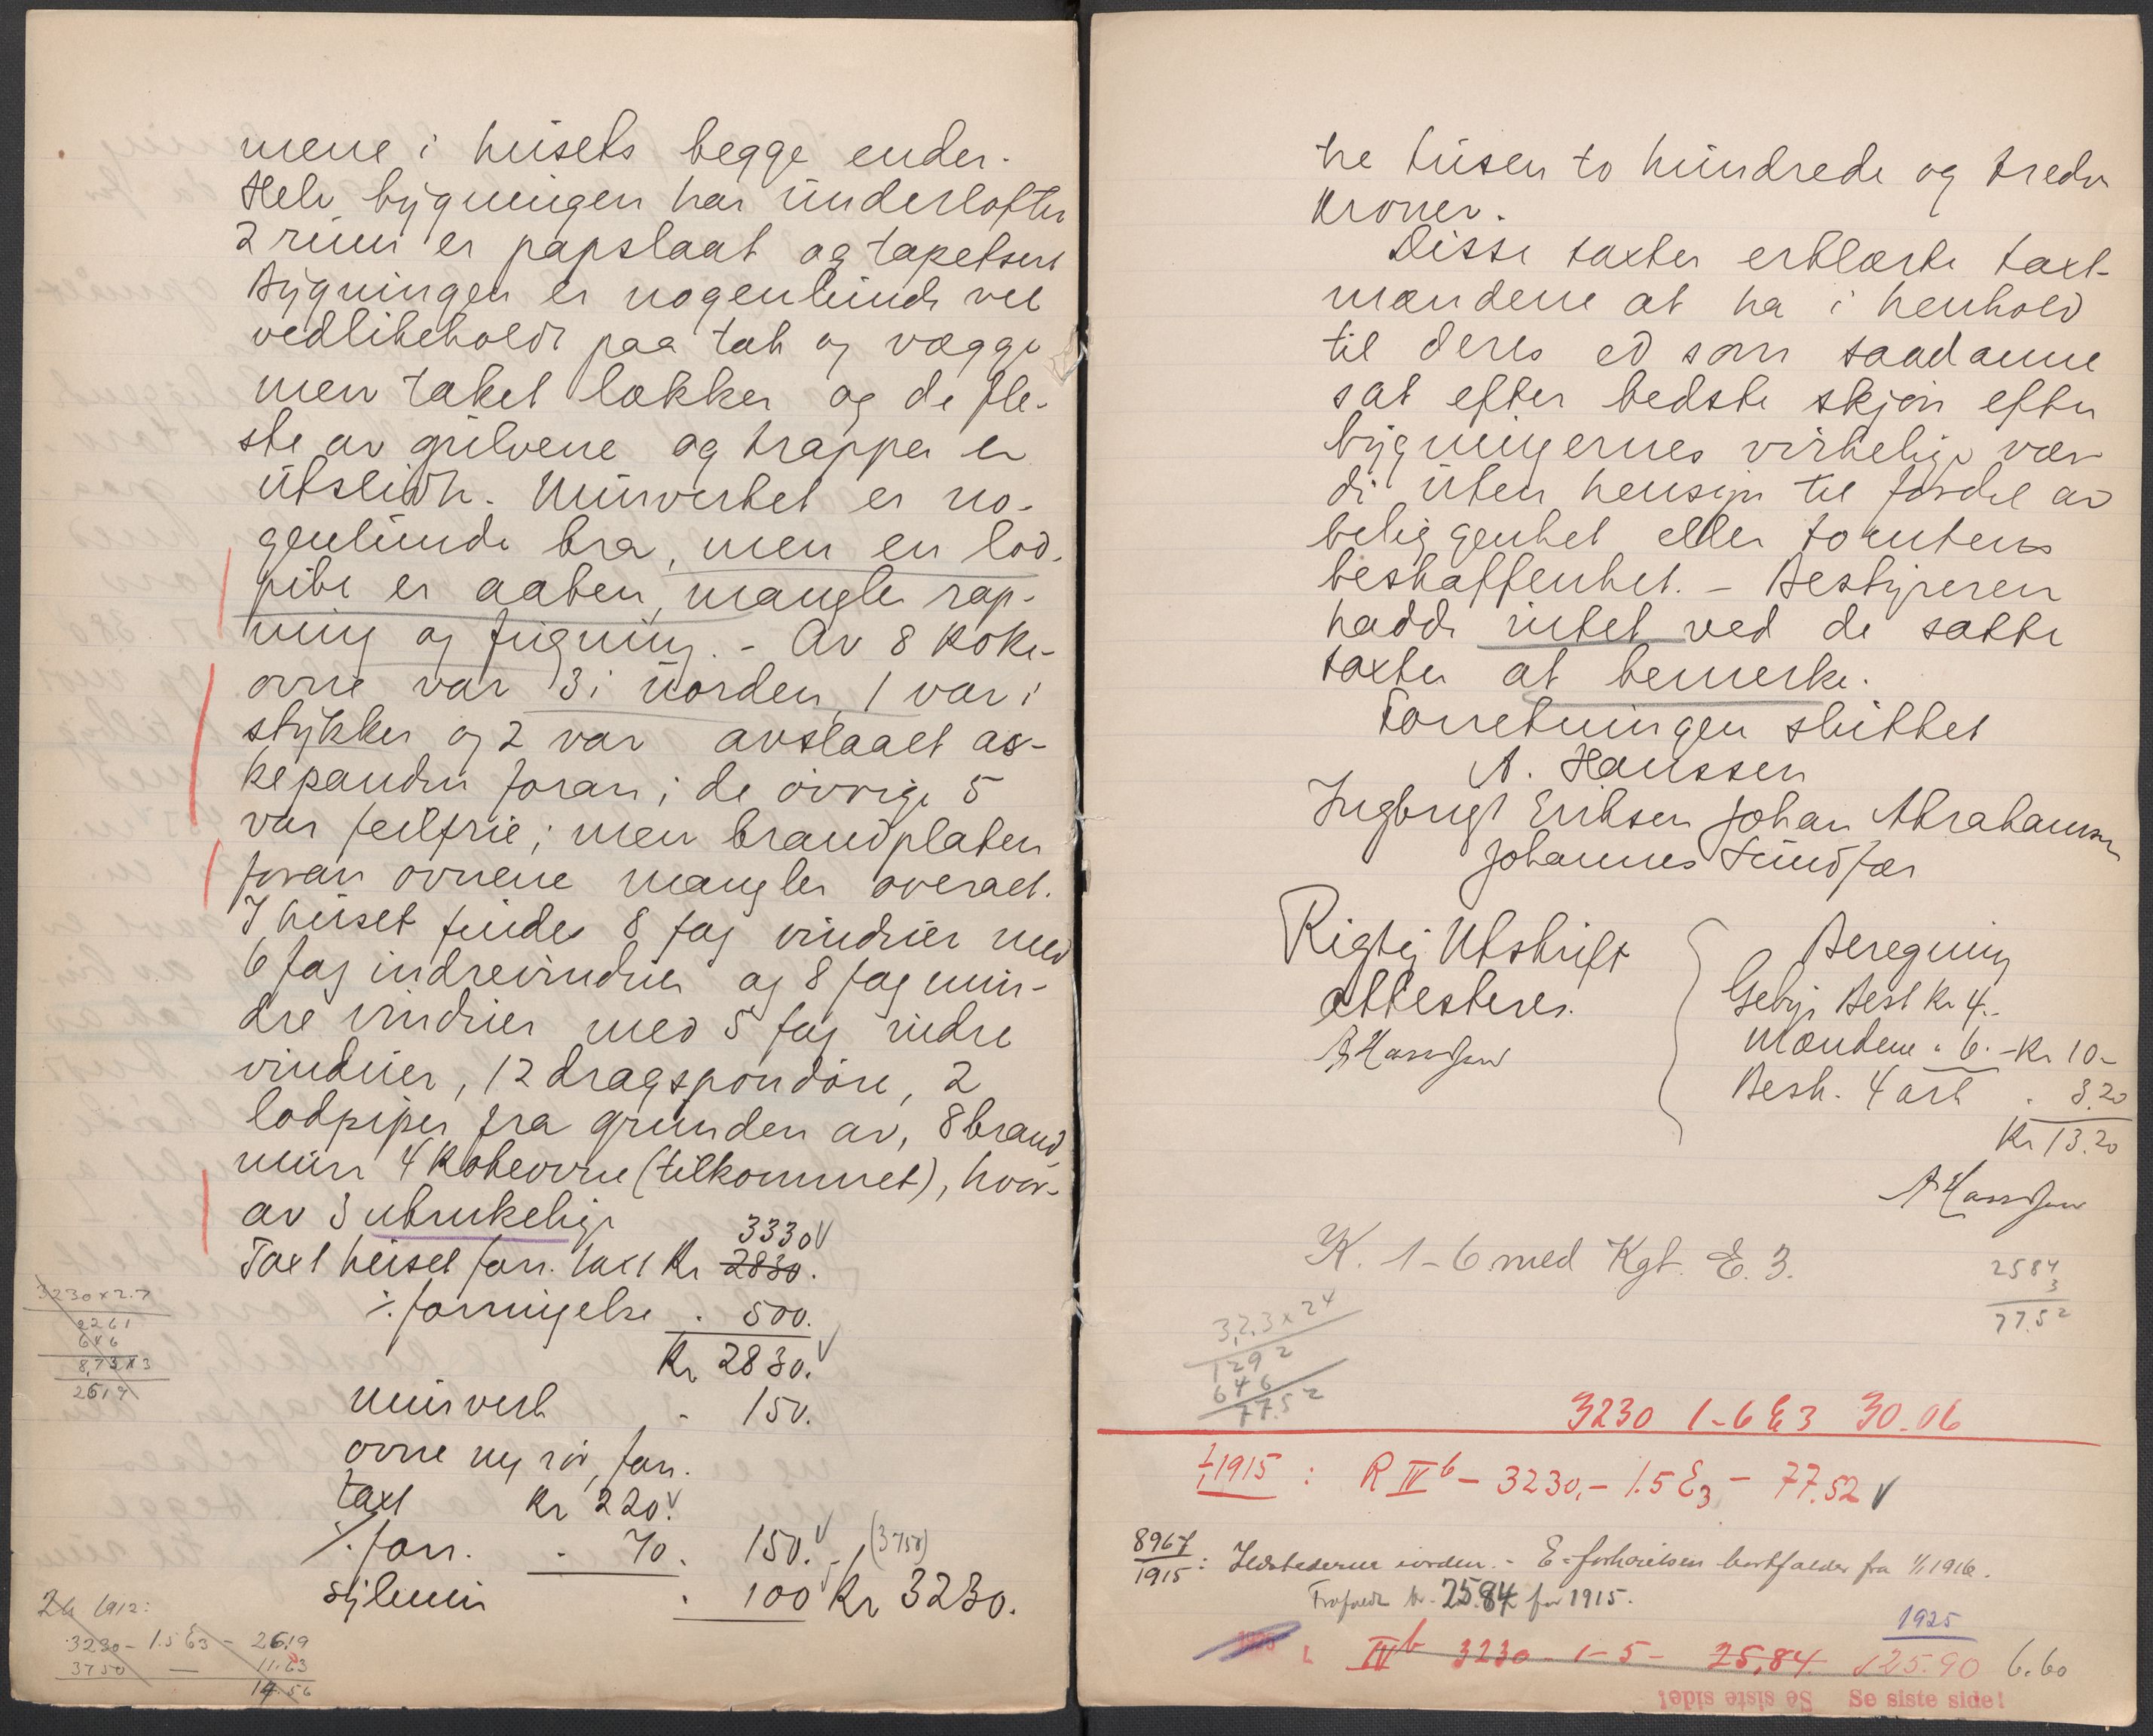 mene i husets begge ender.
Hele bygningen har underlofter
2 rum er papslaat og tapetsert
Bygningen er nogenlunde vel
vedlikeholdt paa tak og vægge
men taket lækker og de fle-
ste av gulvene og trapper er
utslidte. Murverket er no-
genlunde bra, men en lod-
pibe er aaben, mangler rap-
ning og fugning. - Av 8 koke-
ovne var 3 i uorden, 1 var i
stykker og 2 var avslaaet as-
kepanden foran; de øvrige 5
var feilfrie; men brandplaten
foran ovnene mangler overalt.
I huset findes 8 fag vinduer med
6 fag indrevinduer og 8 fag min-
dre vinduer med 5 fag indre
vinduer, 12 dragspondøre, 2
lodpiper fra grunden av, 8 brand
mure 4 kokeovne (tilkommet), hvor-
av 3 ubrukelige
3330
Taxt huset forr. taxt Kr 2830.
% forringelse . 500.
Kr 2830.
murverk - 150.
ovne og rør, forr.
taxt Kr 220.
% forr. - 70. 150. (3750)
sylmur . 100 Kr 3230.
3230 x 2.7
2261
646
8,73 x 3
2619
2/6 1912:
3230 - 1.5 E3 - 26.19
3750 — 11.63
14.56
tre tusen to hundrede og tredve
kroner.
Disse taxter erklærte taxt-
mændene at ha i henhold
til deres ed som saadanne
sat efter bedste skjøn efter
bygningernes virkelige vær-
di uten hensyn til fordel av
beliggenhet eller tomtens
beskaffenhet. - Bestyreren
hadde intet ved de satte
taxter at bemerke.
Forretningen sluttet
A. Hanssen
Ingbrigt Eriksen Johan Abrahamsen
Johannes Sundfær
Rigtig Utskrift
attesteres.
A Hanssen
Beregning
Gebyr Best Kr 4.-
Mændene " 6. - Kr 10-
Besk. 4 ark . 3.20
Kr 13.20
A Hanssen
K. 1-6 med Kgt. E. 3.
2584
3
77.52
3,2.3 x 24
1292
646
77.52
3230 1-6 E3 30.06
1/1 1915 : R IVb - 3230,- 1.5 E3 - 77.52
8967/1915 : Ildstederne iorden. - E-forhøielsen bortfalder fra 1/1 1916.
Frafaldt kr. 25.84 for 1915.
1925
1925 IVb 3230 - 1-5 - 25,84 125.90 6.60
Se siste side! Se siste side!